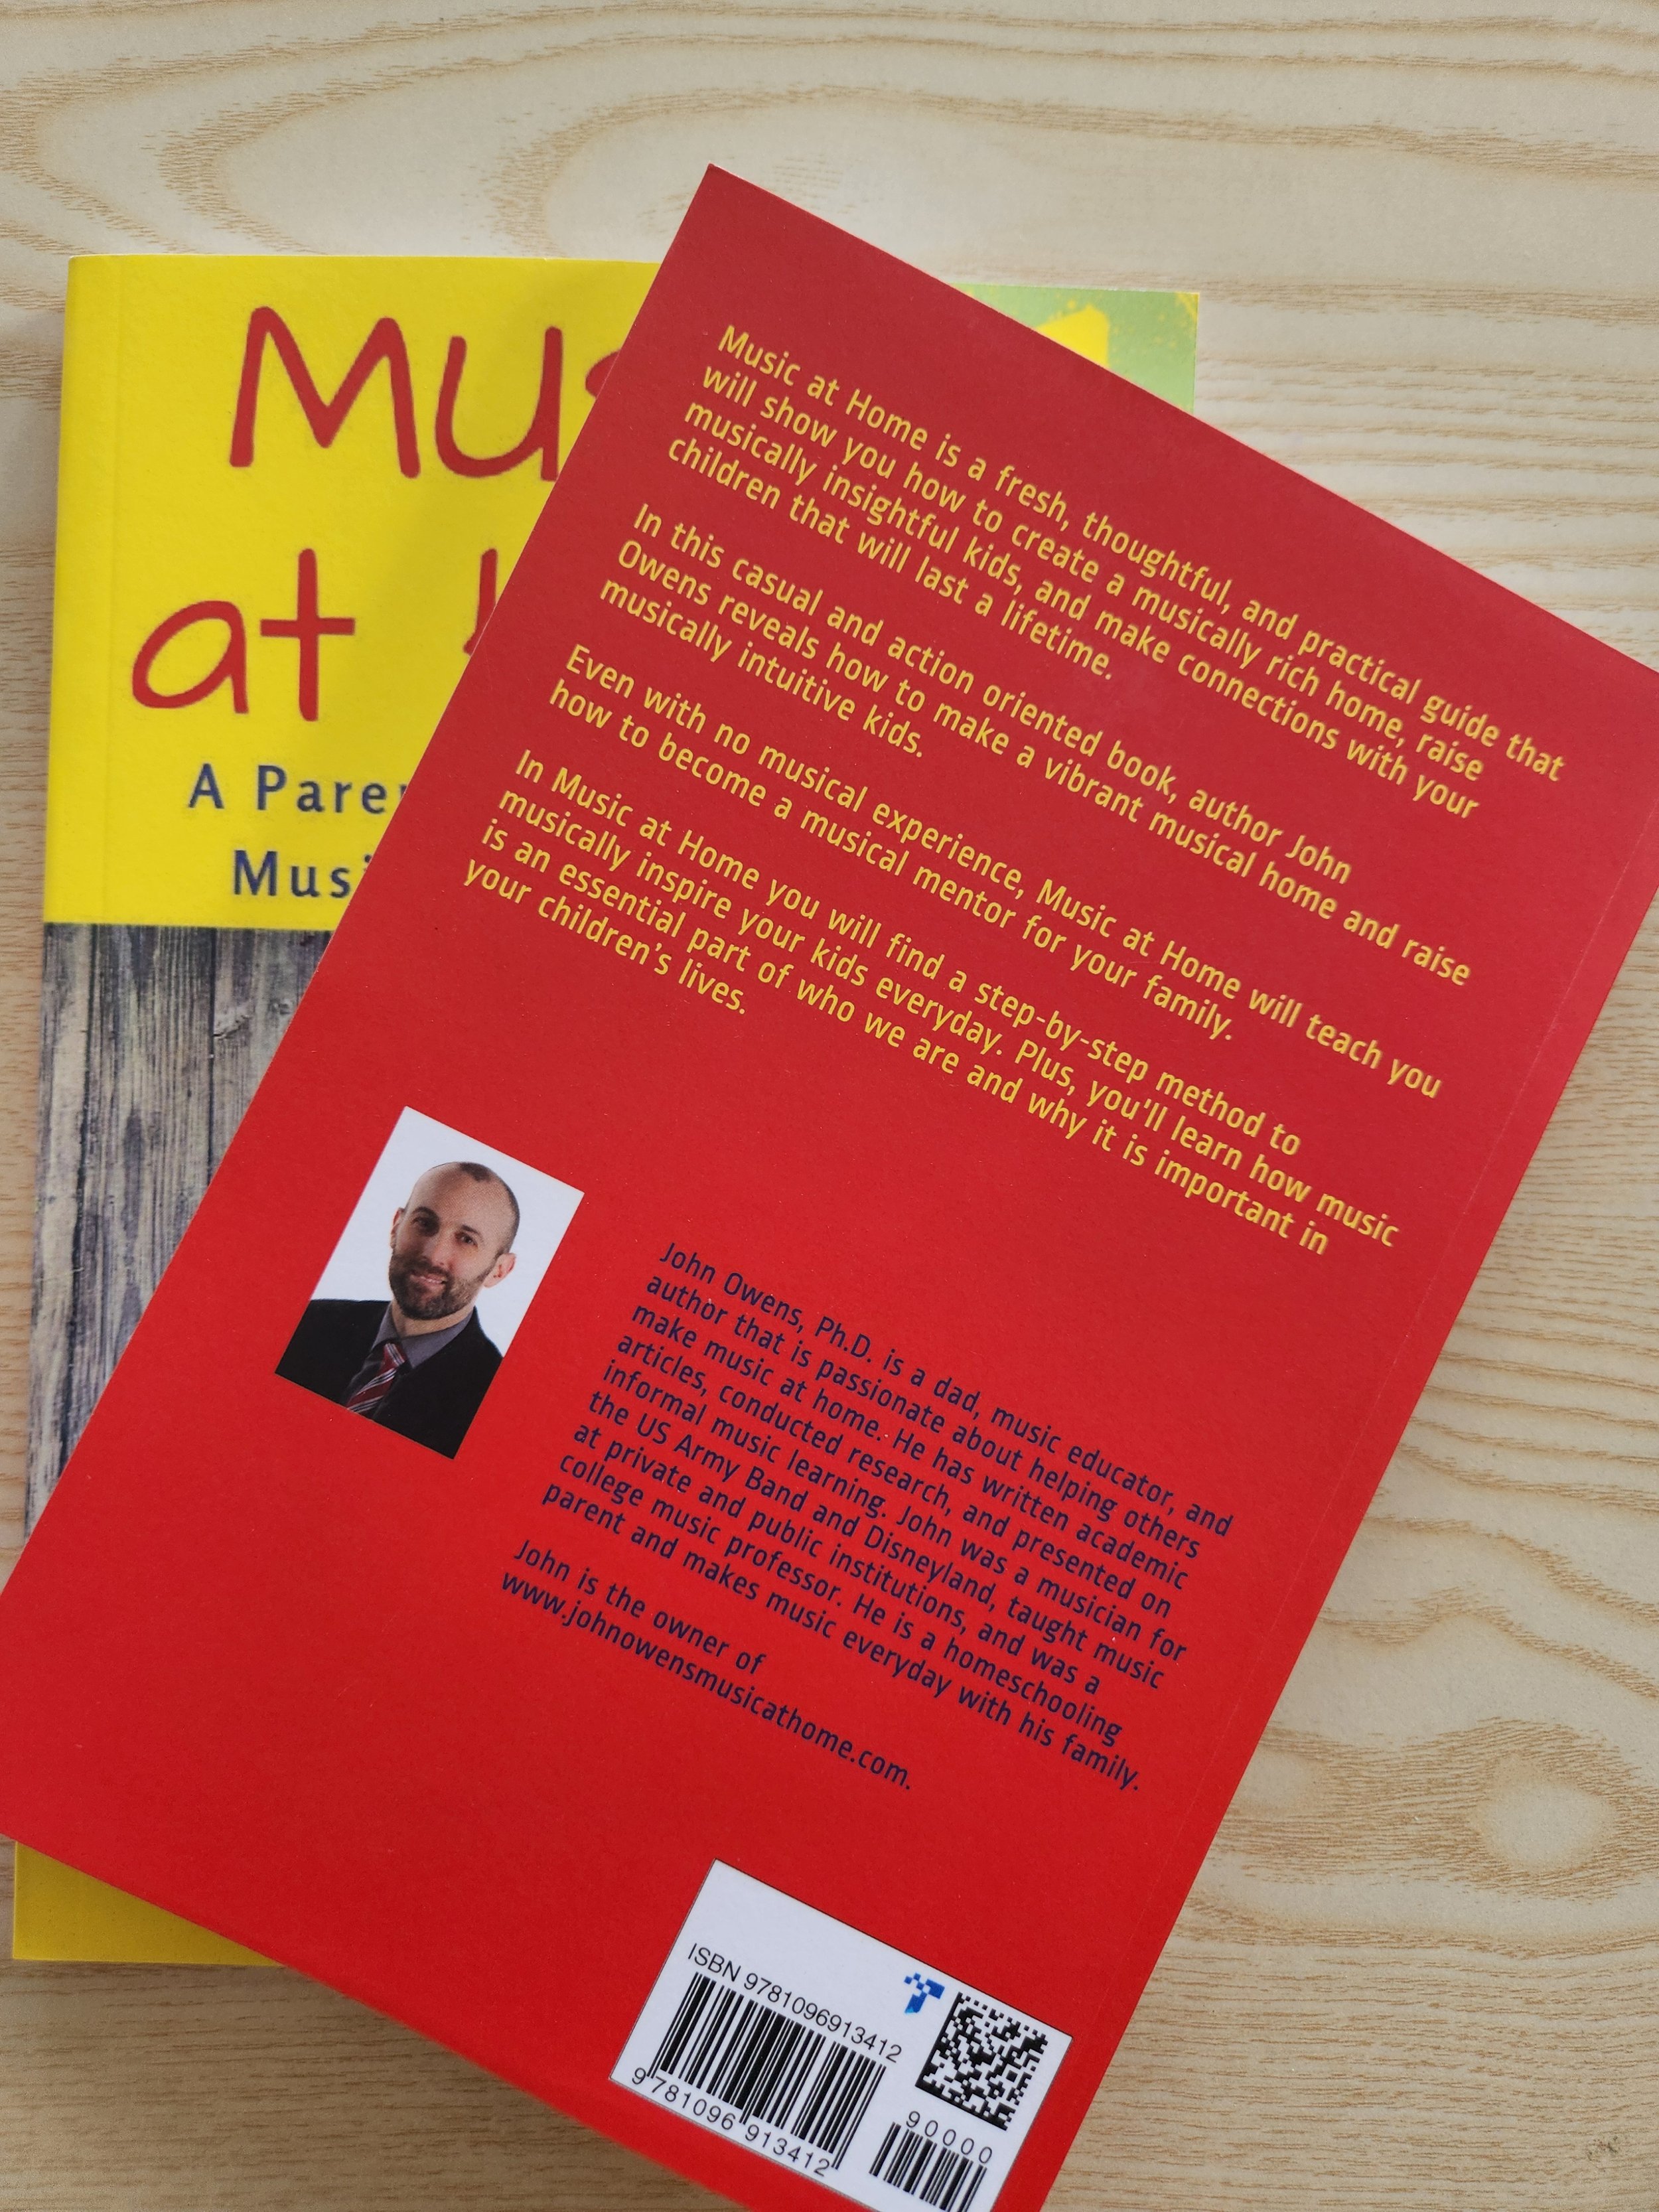 Mus
at
A Paren
Musi
Music at Home is a fresh, thoughtful, and practical guide that
will show you how to create a musically rich home, raise
musically insightful kids, and make connections with your
children that will last a lifetime.
In this casual and action oriented book, author John
Owens reveals how to make a vibrant musical home and raise
musically intuitive kids.
Even with no musical experience, Music at Home will teach you
how to become a musical mentor for your family.
In Music at Home you will find a step-by-step method to
musically inspire your kids everyday. Plus, you'll learn how music
is an essential part of who we are and why it is important in
your children's lives.
John Owens, Ph.D. is a dad, music educator, and
author that is passionate about helping others
make music at home. He has written academic
articles, conducted research, and presented on
informal music learning. John was a musician for
the US Army Band and Disneyland, taught music
at private and public institutions, and was a
college music professor. He is a homeschooling
parent and makes music everyday with his family.
John is the owner of
www.johnowensmusicathome.com.
ISBN 9781096913412
90000
9 781096 913412